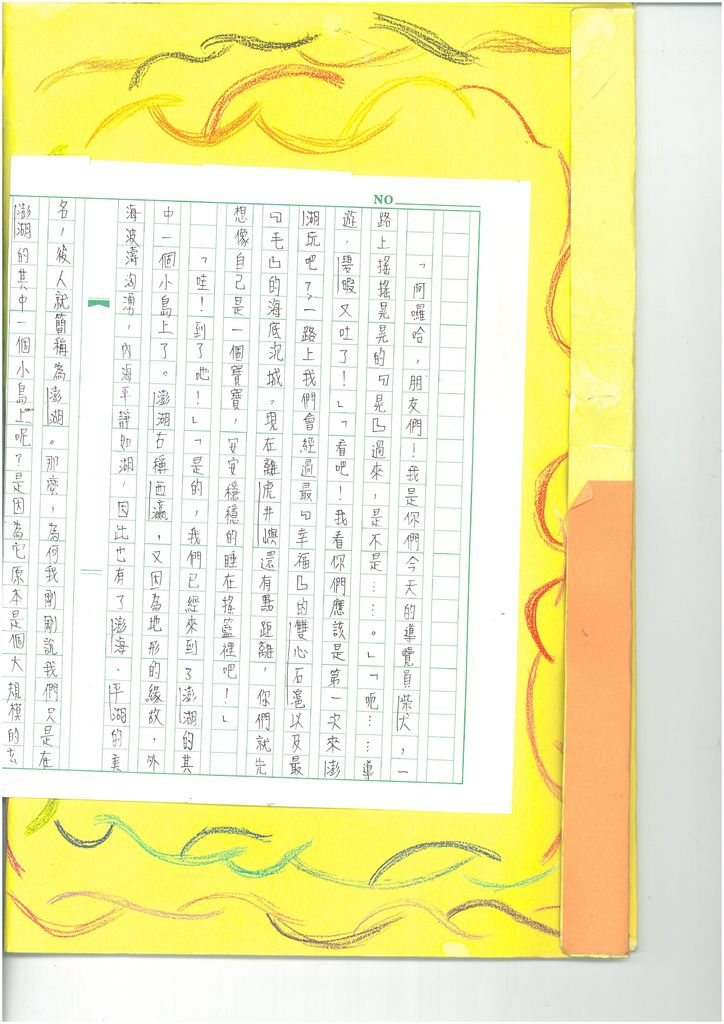 NO
「阿囉哈,朋友們!我是你們今天的導覽員柴犬,一
路上搖搖晃晃的ㄅ晃ㄩ過來,是不是……。」「呃……導
遊,碧暇又吐了!」「看吧!我看你們應該是第一次來澎
湖玩吧?,一路上我們會經過最ㄅ幸福ㄩ的雙心石滬以及最
ㄅ毛ㄩ的海底沉城。現在離虎井嶼還有點距離,你們就先
想像自己是一個寶寶,安安穩穩的睡在搖籃裡吧!」
「哇!到了吔!」「是的,我們已經來到了澎湖的其
中一個小島上了。澎湖古稱西瀛,又因為地形的緣故,外
海波濤洶湧,內海平靜如湖,因此也有了澎海、平湖的美
名,後人就簡稱為澎湖。那麼,為何我剛剛說我們只是在
澎湖的其中一個小島上呢?是因為它原本是個大規模的玄